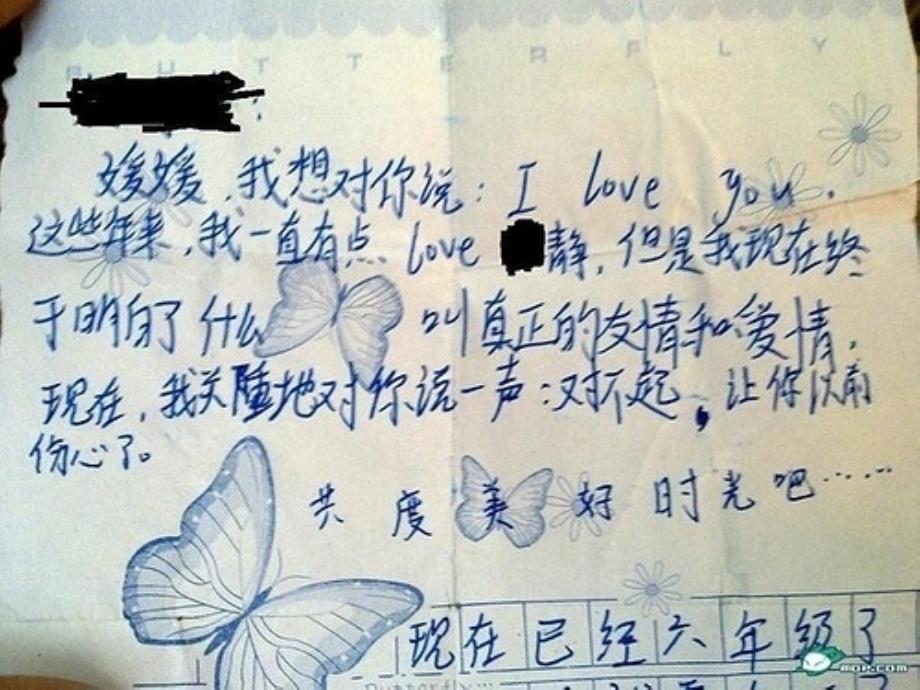 BUTTERFLY
媛媛,我想对你说:I love you.
这些年来,我一直有点 love 静,但是我现在终
于明白了什么叫真正的友情和爱情,
现在,我关瞳地对你说一声:对不起,让你以前
伤心了。
共度美好时光吧……
现在已经六年级了
Butterfly...
MOP.COM